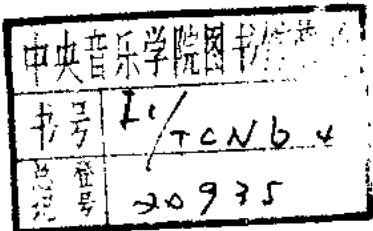 中央音乐学院图书馆
书号 I1/TCNb4
总登记号 20935